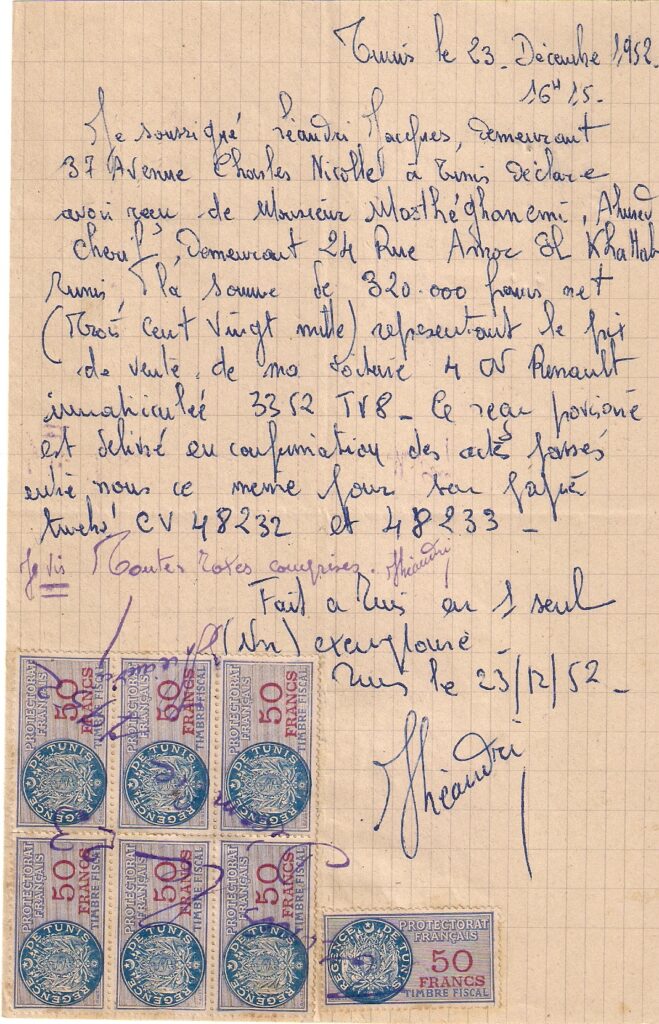 Tunis le 23. Décembre 1952.
16H15.
Je soussigné Théandri Jacques, demeurant
37 Avenue Charles Nicolle à Tunis déclare
avoir reçu de Monsieur Ahmed
Cherif, Demeurant 24 Rue El Khattab
Tunis, la somme de 320.000 francs net
(Trois cent vingt mille) représentant le prix
de vente de ma voiture 4 CV Renault
immatriculée 3352 TV8 - Ce reçu
est délivré en confirmation des actes passés
entre nous ce même jour sur papier
timbré CV 48232 et 48233 -
Je dis Toutes taxes comprises. Théandri
Fait à Tunis en 1 seul
(Un) exemplaire
Tunis le 23/12/52 -
JThéandri
PROTECTORAT FRANÇAIS
50 FRANCS
TIMBRE FISCAL
REGENCE DE TUNIS
PROTECTORAT FRANÇAIS
50 FRANCS
TIMBRE FISCAL
REGENCE DE TUNIS
PROTECTORAT FRANÇAIS
50 FRANCS
TIMBRE FISCAL
REGENCE DE TUNIS
PROTECTORAT FRANÇAIS
50 FRANCS
TIMBRE FISCAL
REGENCE DE TUNIS
PROTECTORAT FRANÇAIS
50 FRANCS
TIMBRE FISCAL
REGENCE DE TUNIS
PROTECTORAT FRANÇAIS
50 FRANCS
TIMBRE FISCAL
REGENCE DE TUNIS
PROTECTORAT FRANÇAIS
50 FRANCS
TIMBRE FISCAL
REGENCE DE TUNIS